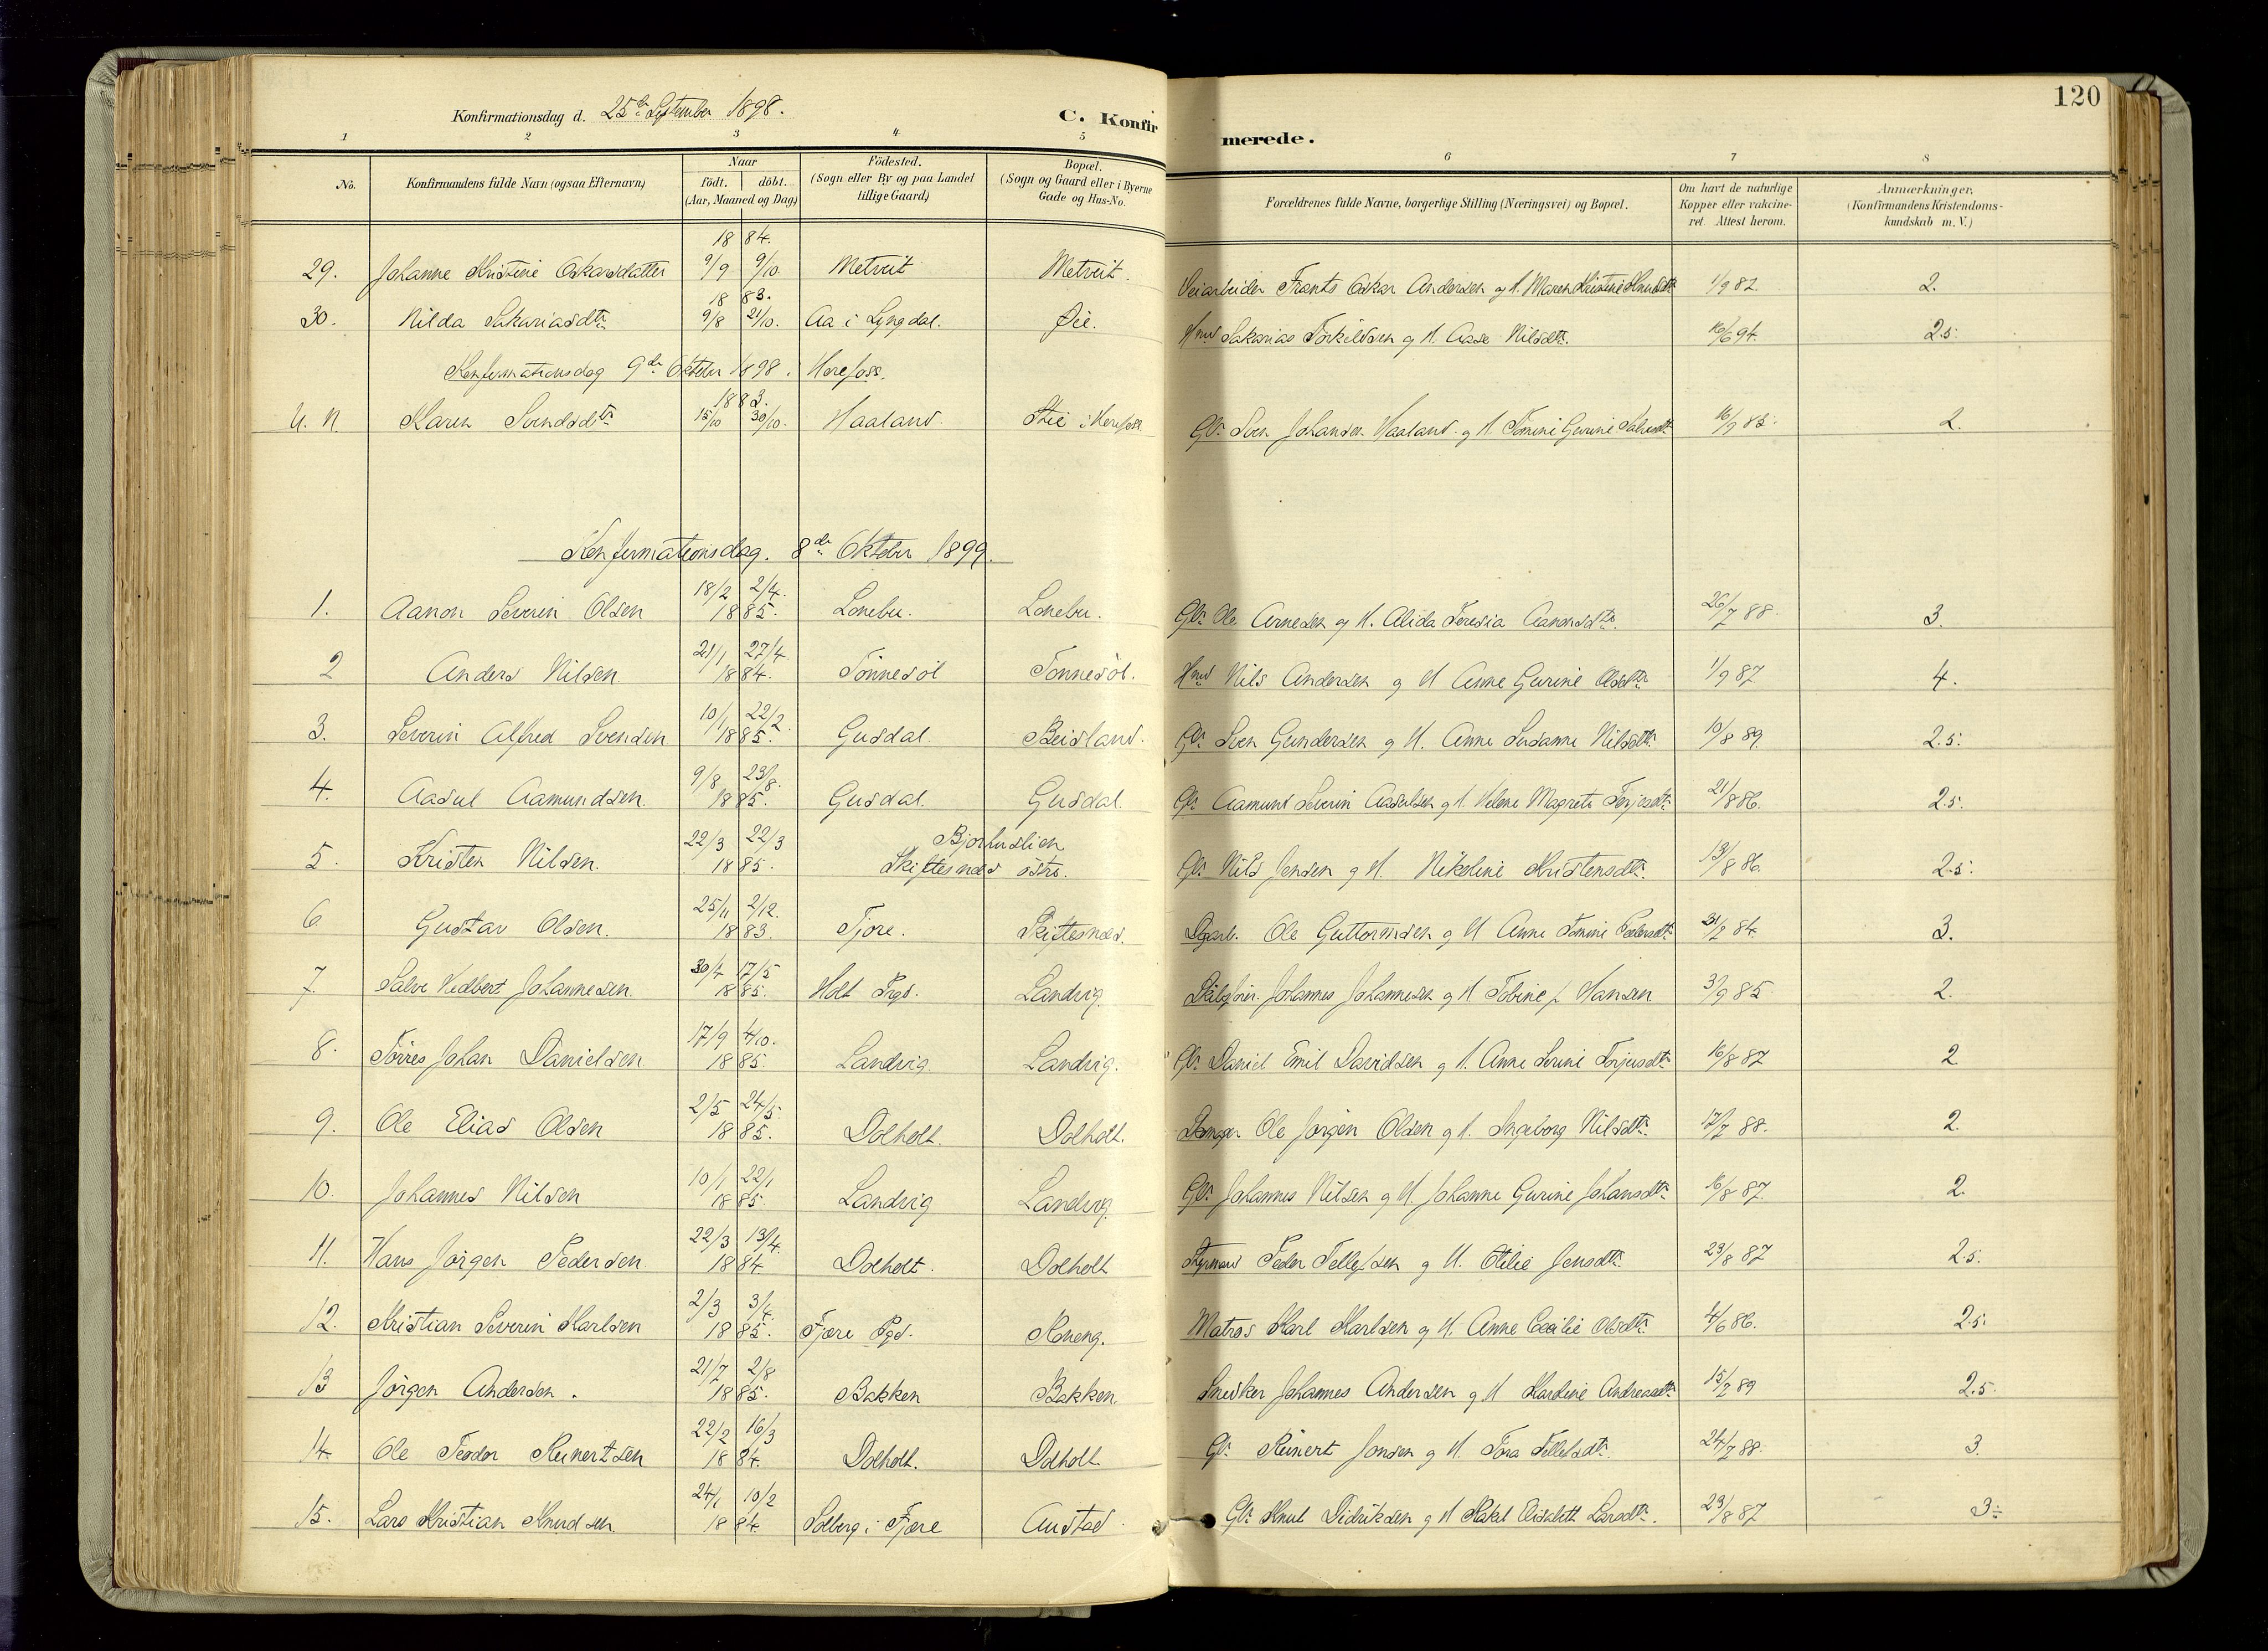 120
Konfirmationsdag d. 25de September 1898.
C. Konfirmerede.
1 2 3 4 5 6 7 8
No. Konfirmandens fulde Navn (ogsaa Efternavn) Naar födt. döbt. (Aar, Maaned og Dag) Födested. (Sogn eller By og paa Landet tillige Gaard) Bopæl. (Sogn og Gaard eller i Byerne Gade og Hus-No. Forældrenes fulde Navne, borgerlige Stilling (Næringsvei) og Bopæl. Om havt de naturlige Kopper eller vakcineret. Attest herom. Anmærkninger, (Konfirmandens Kristendomskundskab m. V.)
1884.
29. Johanne Kristine Oskarsdatter 9/9 9/10. Metveit Metveit. Veiarbeider Frants Oskar Andersen og H. Maren Kristine Knudsdtr 1/9 82. 2.
1883.
30. Nilda Sakariasdtr 9/8 21/10. Aa i Lyngdal. Øie. Hmd Sakarias Torkildsen og H. Aase Nilsdtr. 16/6 94. 2.5.
Konfirmationsdag 9de Oktober 1898. Herefoss.
1883.
U. N. Karen Svendsdtr 15/10 30/10. Haaland. i Herefoss Gbr. Sven Johansen Haaland og H. Tomine Gurine 16/9 2.
Konfirmationsdag. 8de Oktober 1899.
1. Aanon Severin Olsen 18/2 2/4. 1885. Lonebu. Lonebu. Gbr. Ole Arnesen og H. Alida Teresia Aanonsdtr. 26/7 88. 3.
2 Anders Nilsen 21/1 27/4. 1884. Tönnesöl Tonnesöl. Hmd Nils Andersen og H Anne Gurine Olsdtr 1/9 87 4.
3. Severin Alfred Svendsen 10/1 22/2. 1885. Gusdal Beisland. Gbr. Sven Gundersen og H. Anne Susanne Nilsdtr. 10/8 89. 2.5.
4. Aasul Aamundsen. 9/8 23/8. 1885. Gusdal. Gusdal. Gbr. Aamund Severin Aasulsen og H. Helene Magrete Terjesdtr 21/8 86. 2.5.
5. Kristen Nilsen. 22/3 22/3 1885. Bjorhuslien Skiftesnæs östre. Gbr. Nils Jensen og H. Nikoline Kristensdtr. 13/8 86. 2.5.
6 Gustav Olsen. 25/11 2/12. 1883. Fjore. Skiftesnæs. Dgarb. Ole Guttormsen og H Anne Tomine Pedersdtr 84. 3.
7. Salve Hedbert Johannesen. 30/4 17/5 1885. Holt Prgd. Landvig. Skibsfører. Johannes Johannesen og H Tobine f. Hansen 3/9 85 2.
8. Törres Johan Danielsen 17/9 4/10. 1885. Landvig Landvig. Gbr. Daniel Emil Davidsen og H. Anne Serine Terjesdtr. 16/8 87 2
9. Ole Elias Olsen 2/5 24/5. 1885. Dolholt. Dolholt. Ole Jörgen Olsen og H. Ingeborg Nilsdtr. 17/7 88. 2.
10. Johannes Nilsen 10/1 22/1 1885. Landvig Landvig. Gbr. Johannes Nilsen og H. Johanne Gurine Johansdtr. 16/8 87. 2.
11. Hans Jörgen Pedersen 22/3 13/4. 1884. Dolholt. Dolholt Styrmand Peder Tellefsen og H. Otilie Jensdtr. 23/8 87 2.5.
12. Kristian Severin Karlsen 2/3 3/4. 1885. Fjære Pgd. Roneng. Matros Karl Karlsen og H. Anne Cecilie Olsdtr. 4/6 86. 2.5.
13 Jörgen Andersen. 21/7 2/8 1885. Bakken Bakken. Snedker Johannes Andersen og H Karoline Andreasdtr 15/7 89 2.5.
14. Ole Teodor Reinertsen 22/2 16/3 1884. Dolholt. Dolholt. Gbr. Reinert Jonsen og H. Tora Tellefsdtr. 24/7 88. 3.
15. Lars Kristian Knudsen 24/1 10/2 1884. Solberg i Fjære Austad. Gbr. Knut Didriksen og H Rakel Elisabeth Larsdtr. 23/8 87 3÷